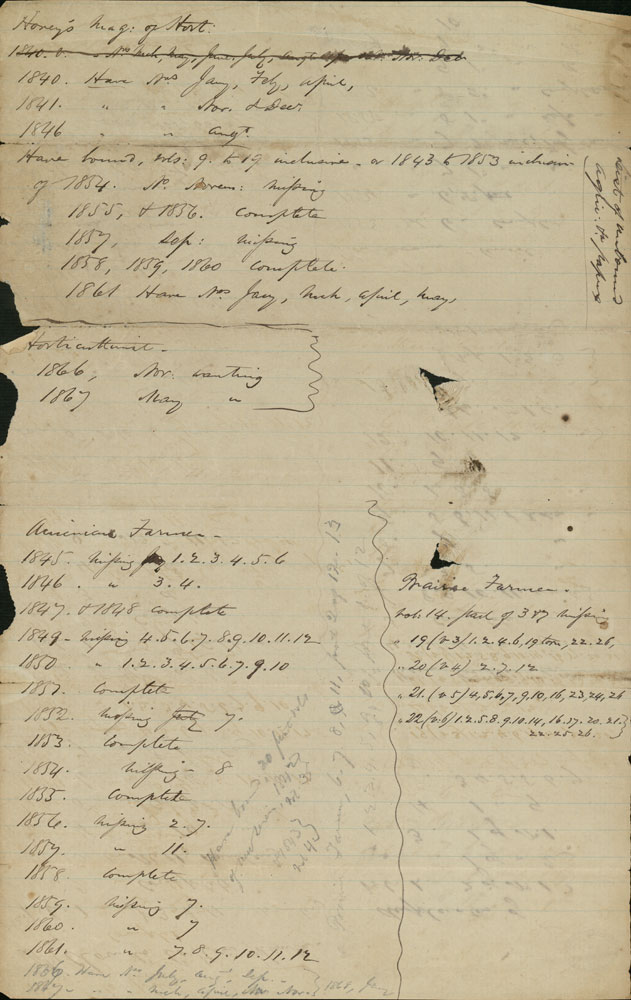 Hovey's Mag: of Hort.
1840.
1840. Have Nos Jany, Feby, April,
1841. " " Nov. & Decr.
1846 " " Augt.
Have bound, vols: 9. to 19 inclusive - or 1843 to 1853 inclusive
of 1854. No. Novem: missing
1855, & 1856. complete
1857, Sep: missing
1858, 1859, 1860 complete.
1861 Have Nos Jany, Mch, April, May,
List of unbound
Agric: papers
Horticulturist.
1866, Nov. wanting
1867 May "
American Farmer.
1845. missing 1.2.3.4.5.6
1846. " 3.4.
1847. & 1848 complete
1849 - missing 4.5.6.7.8.9.10.11.12
1850. " 1.2.3.4.5.6.7.9.10
1851. complete
1852. missing 7.
1853. complete
1854. missing - 8
1855. complete
1856. missing 2.7.
1857. " 11.
1858. complete
1859. missing 7.
1860. " 7
1861. " 7.8.9.10.11.12
1866. Have Nos July, Augt, Sep.
1867 - " - Mch, April, Nov.
1868, Jany
Prairie Farmer.
vol. 14. part of 3 & 7 missing
" 19 (v 3) 1.2.4.6, 22.26,
" 20 (v 4) 2.7.12
" 21. (v 5) 4,5,6,7,9,10,16,23,24,26
" 22 (v. 6) 1.2.5.8.9.10.14,16.17.20.21.
22.25.26.